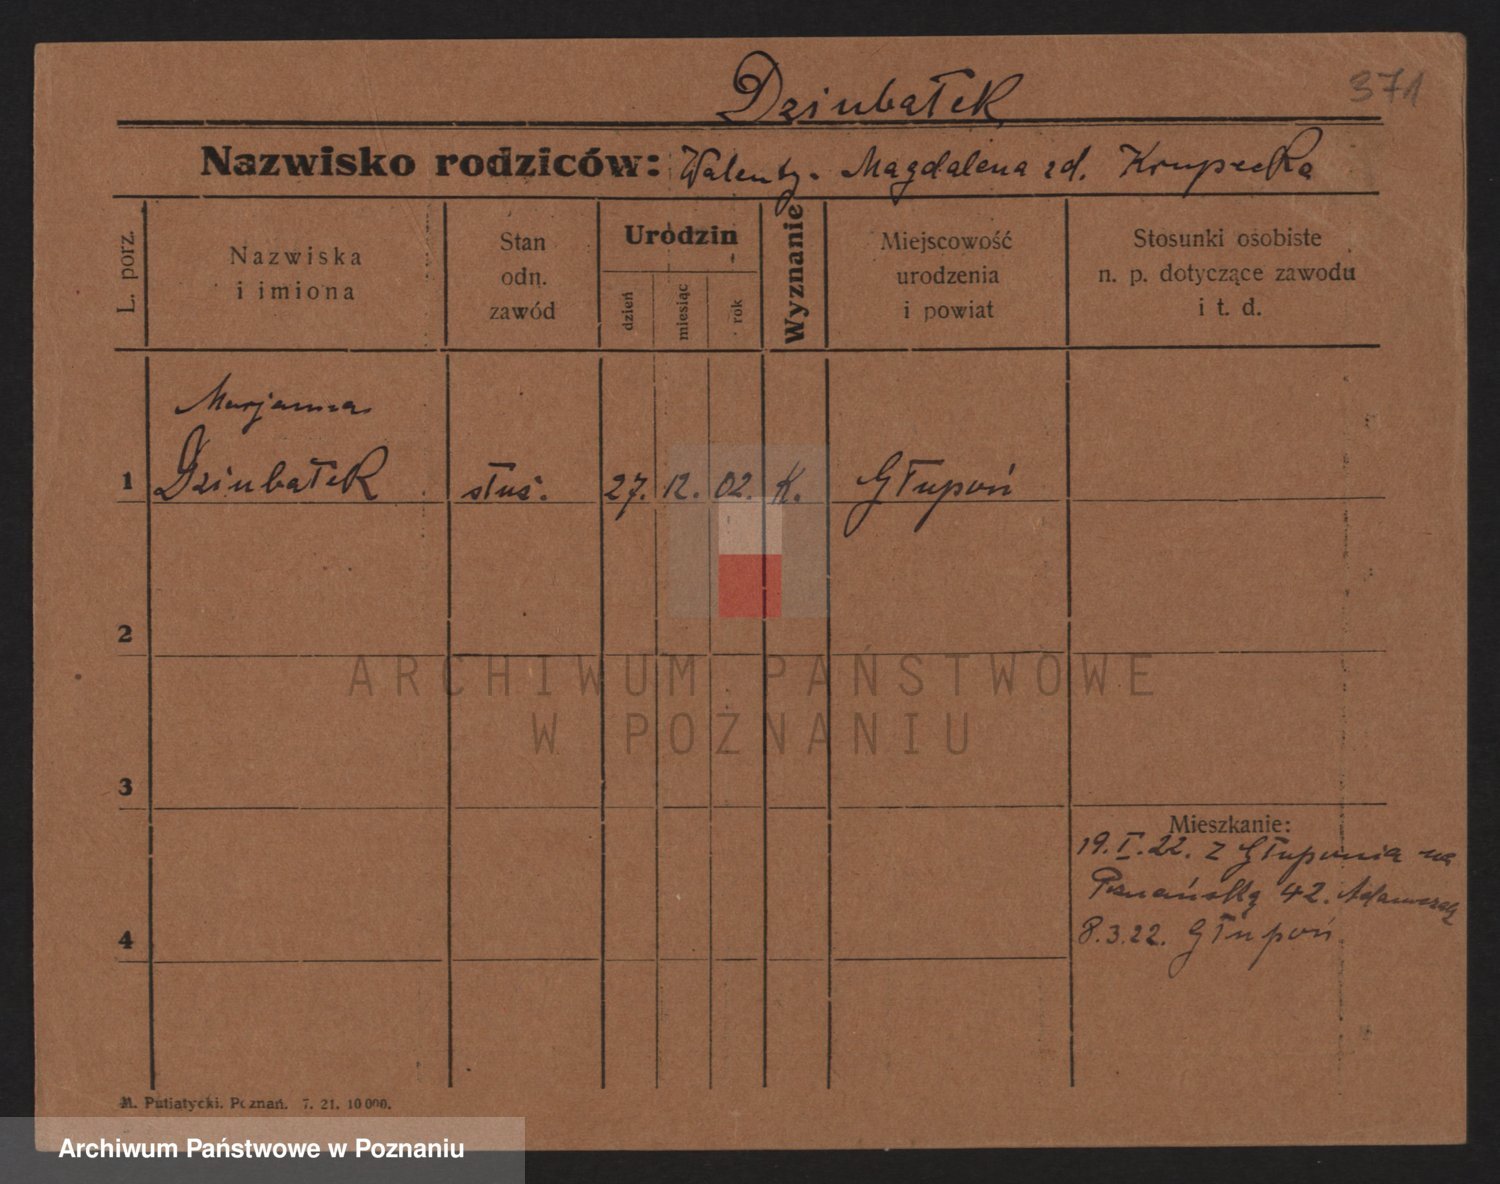 Dziubałek
371
Nazwisko rodziców: Walenty. Magdalena zd. Krupecka
L. porz.
Nazwiska
i imiona
Stan
odn.
zawód
Urodzin
dzień
miesiąc
rok
Wyznanie
Miejscowość
urodzenia
i powiat
Stosunki osobiste
n. p. dotyczące zawodu
i t. d.
Marjanna
1 Dziubałek służ. 27. 12. 02. K. Głupoń
2
3
Mieszkanie:
19. I. 22. z Głuponia na
Poznańską 42.
8.3.22. Głupoń
4
M. Putiatycki. Poznań. 7. 21. 10 000.
ARCHIWUM PAŃSTWOWE
W POZNANIU
Archiwum Państwowe w Poznaniu